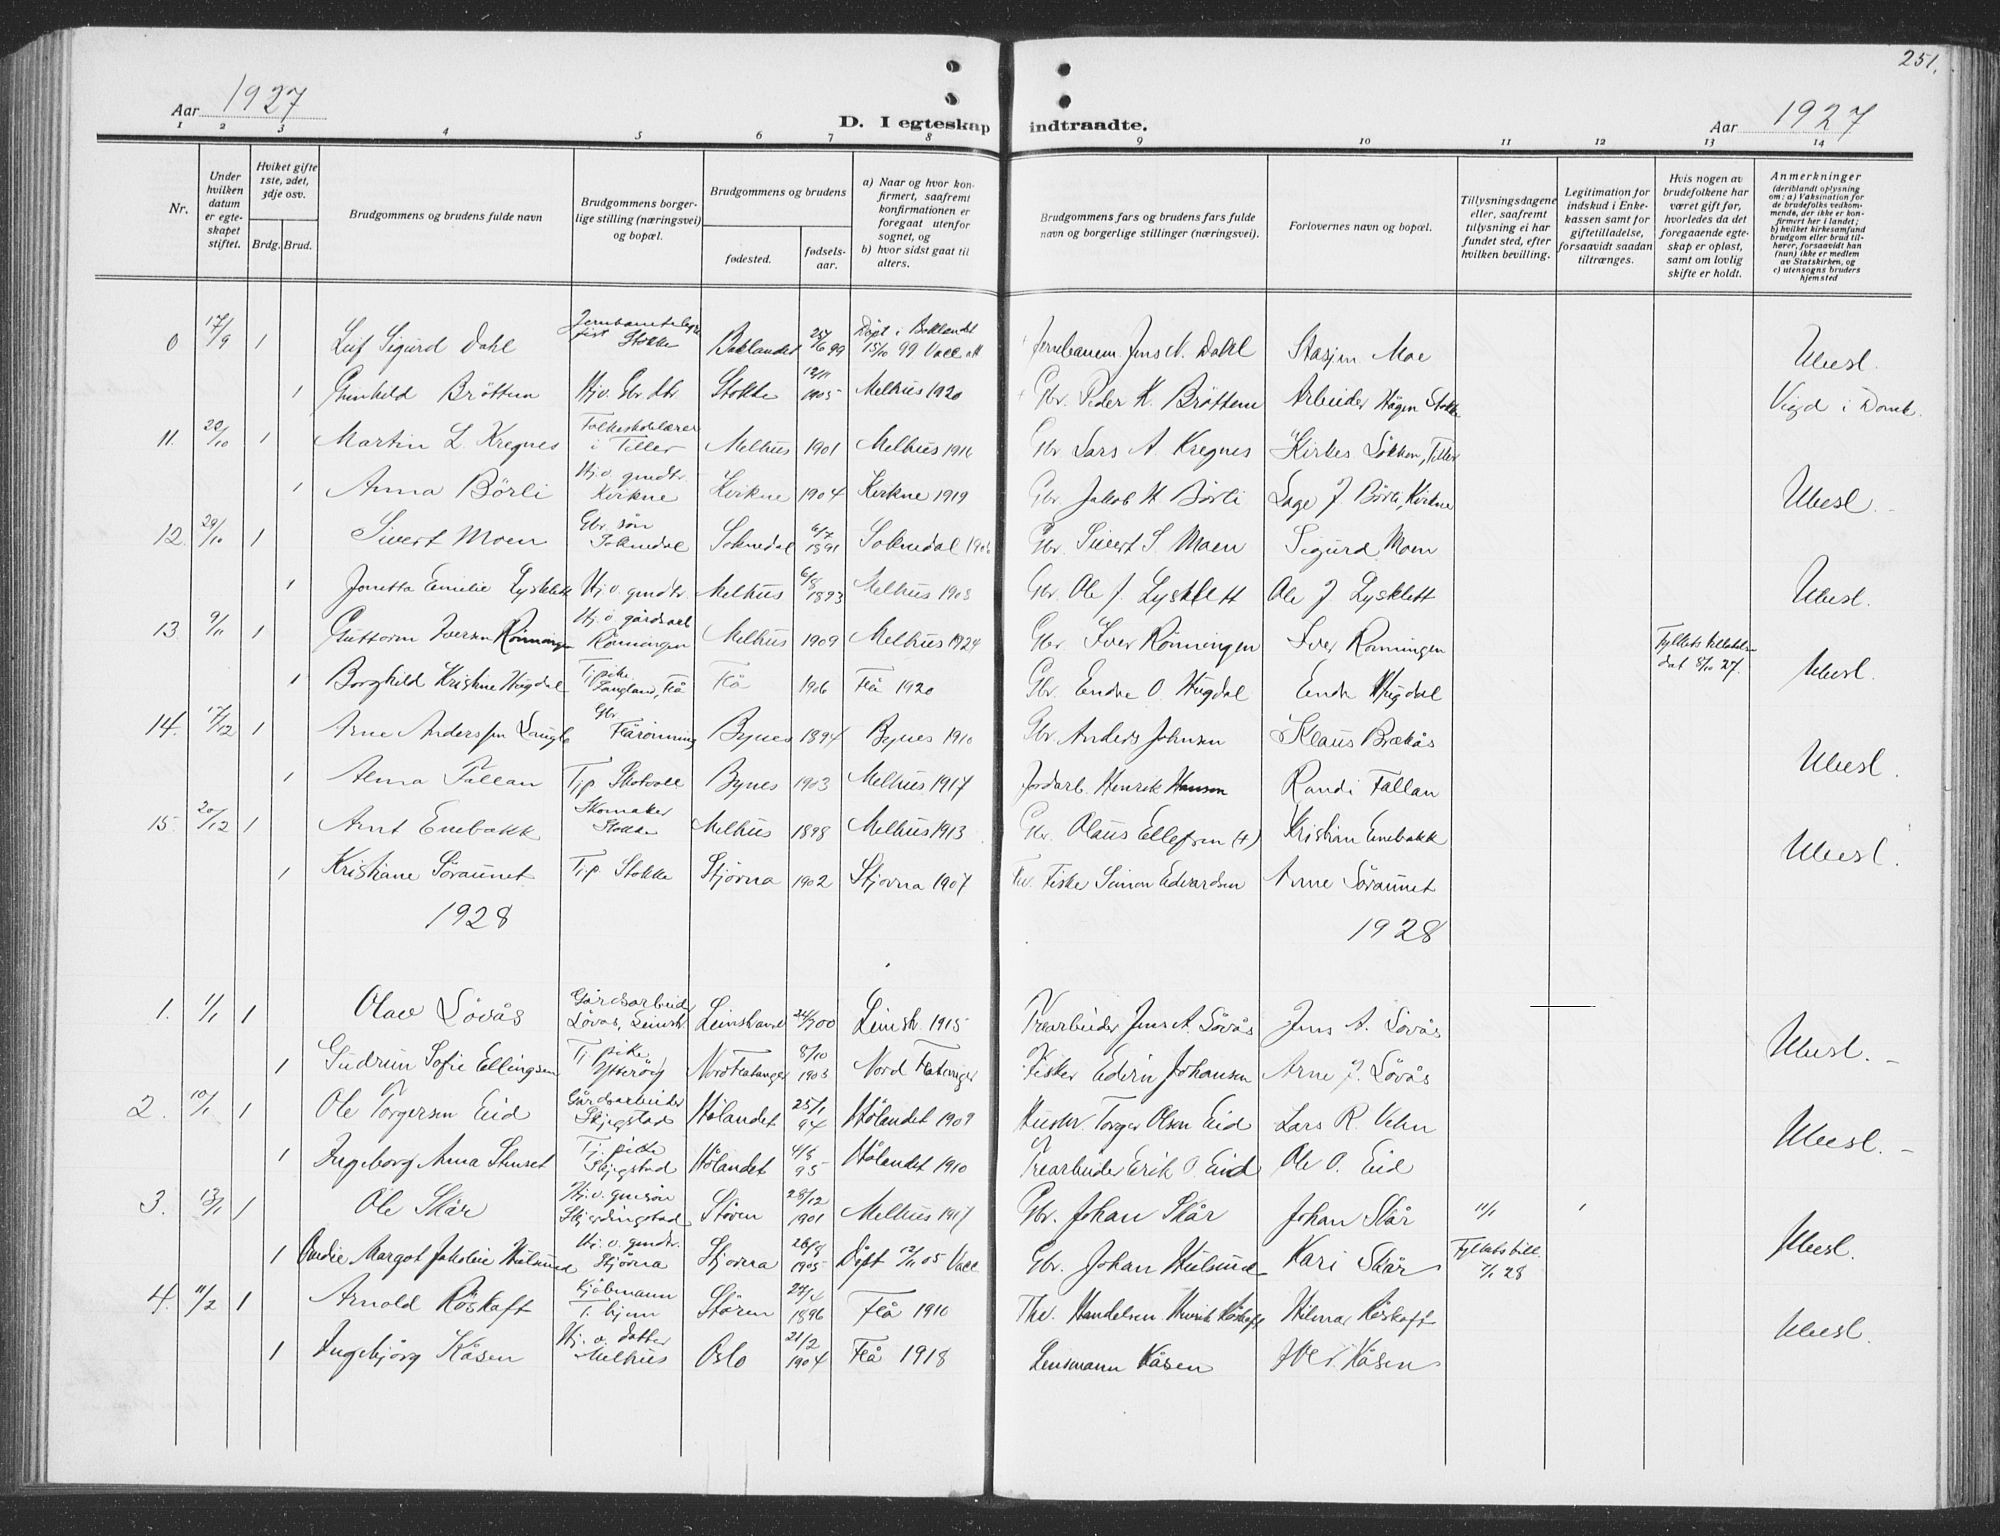 251.
Aar 1927
D. I egteskap indtraadte.
Aar 1927
1 2 3 4 5 6 7 8 9 10 11 12 13 14
Nr.
Under hvilken datum er egteskapet stiftet.
Hviket gifte 1ste, 2det, 3dje osv.
Brdg. Brud.
Brudgommens og brudens fulde navn
Brudgommens borgerlige stilling (næringsvei) og bopæl.
Brudgommens og brudens
fødested.
fødselsaar.
a) Naar og hvor konfirmert, saafremt konfirmationen er foregaat utenfor sognet, og
b) hvor sidst gaat til alters.
Brudgommens fars og brudens fars fulde navn og borgerlige stillinger (næringsvei).
Forlovernes navn og bopæl.
Tillysningsdagene eller, saafremt tillysning ei har fundet sted, efter hvilken bevilling.
Legitimation for indskud i Enkekassen samt for giftetilladelse, forsaavidt saadan tiltrænges.
Hvis nogen av brudefolkene har været gift før, hvorledes da det foregaaende egteskap er opløst, samt om lovlig skifte er holdt.
Anmerkninger (deriblandt oplysning om: a) Vaksination for de brudefolks vedkommende, der ikke er konfirmert her i landet; b) hvilket kirkesamfund brudgom eller brud tilhører, forsaavidt han (hun) ikke er medlem av Statskirken, og c) utensogns bruders hjemsted
0 17/9 1 Leif Sigurd Dahl Stokke Baklandet 25/6 99 Døpt i Baklandet 15/10 99 Jernbanem. Jens N. Dahl Stasjm Moe Ubesl.
1 Gunhild Bröttem Hj.v. Gbr. dtr Stokke 12/11 1905 Melhus 1920 Gbr. Peder K. Bröttem Arbeider Hågen Stokke Viqd i Domk.
11. 20/10 1 Martin L. Kregnes Folkeskolelærer i Tiller Melhus 1901 Melhus 1916 Gbr Lars A. Kregnes Kirkes. Løkken, Tiller
1 Anna Börli Hj.v. gmdtr. Kvikne Kvikne 1904 Kvikne 1919 Gbr. Jakob H. Börli Lage J. Börli, Kvikne Ubesl.
12. 29/10 1 Sivert Moen Gbr. søn Soknedal Soknedal 6/7 1891 Soknedal 1906 Gbr. Sivert S. Moen Sigurd Moen
1 Jonetta Emilie Lysklett Hj.v. gmdtr. Melhus 6/8 1893 Melhus 1908 Gbr. Ole J. Lysklett Ole J. Lysklett Ubesl.
13. 9/11 1 Guttorm Iversen Rönningen Hj.v gårdsarb Rönningen Melhus 1909 Melhus 1924 Gbr. Iver Rönningen Iver Rönningen
1 Borghild Kristine Hugdal Tj.pike Langland, Flå Flå 1906 Flå 1920 Gbr. Endre O. Hugdal Endr Hugdal Fylkets tilladelse dat 8/10 27. Ubesl.
14. 17/12 1 Arne Anderssen Langlo Gbr. Flårönning Bynes 1894 Bynes 1910 Gbr Anders Johnsen Klaus Brekås
1 Alma Fallan Tjp. Skotvoll Bynes 1903 Melhus 1917 Jordarb. Henrik Hansen Randi Fallan Ubesl.
15. 20/12 1 Arnt Enebakk Skomaker Stokke Melhus 1898 Melhus 1913 Gbr. Olaus Ellefsen (+) Kristian Enebakk
1 Kristiane Söraunet Tjp Stokke Stjørna 1902 Stjørna 1907 Fisker Simon Edvardsen Arne Söraunet Ubesl.
1928 1928
1. 1/1 1 Olav Lövås Gårdsarbeid Lövås, Leinstr. Leinstrand 24/7 00 Leinstr. 1915 Trearbeider Jens A. Lövås Jens A. Lövås
1 Gudrun Sofie Ellingsen Tj.pike Ytterøy Nord Flatanger 8/10 1903 Nord Flatanger Fisker Edvin Johansen Arne J. Lövås Ubesl.
2. 10/1 1 Ole Torgersen Eid Gårdsarbeider Skjegstad Hölandet 25/1 94 Hölandet 1909 Husmr. Torger Olsen Eid Lars R. Vehn
1 Ingeborg Anna Stenset Tj.pike Skjegstad Hölandet 4/8 95 Hölandet 1910 Trearbeider Erik O. Eid Ole O. Eid Ubesl.
3. 13/1 1 Ole Skår Hj.v. gmsön Skjerdingstad Stören 28/12 1901 Melhus 1917 Gbr. Johan Skår Johan Skår 11/1 1
1 Margot Jakobie Hulsund Hj.v. gmdtr. Stjørna Stjørna 26/8 1905 Døpt 12/11 05 Gbr. Johan Hulsund Kari Skår Fylkets bill. 7/1 28 Ubesl.
4. 11/2 1 Arnold Röskaft Kjöbmann T. hjem Stören 27/4 1896 Flå 1910 Handelsm Henrik Röskaft Hilmar Röskaft
1 Ingebjörg Kåsen Hj.v. datter Melhus Oslo 21/2 1904 Flå 1918 Lensmann Kåsen Kåsen Ubesl.